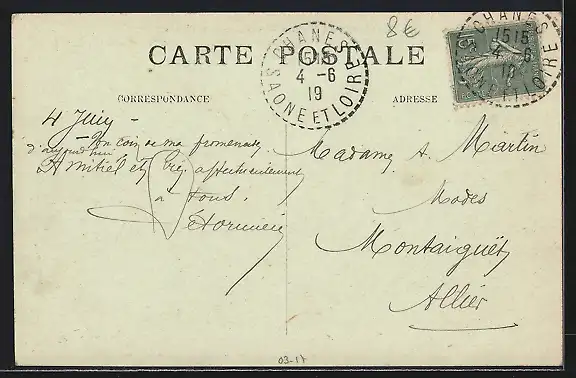 8€
CARTE POSTALE
CHANES
15 15
4 - 6
19
SAONE ET LOIRE
CHANES
15 15
4 - 6
19
SAONE ET LOIRE
15
CORRESPONDANCE
ADRESSE
4 Juin -
- Un coin de ma promenade
d'aujourd'hui
Amitiés et affectueusement
à tous.
Madame A. Martin
Modes
Montaiguët
Allier
03-17